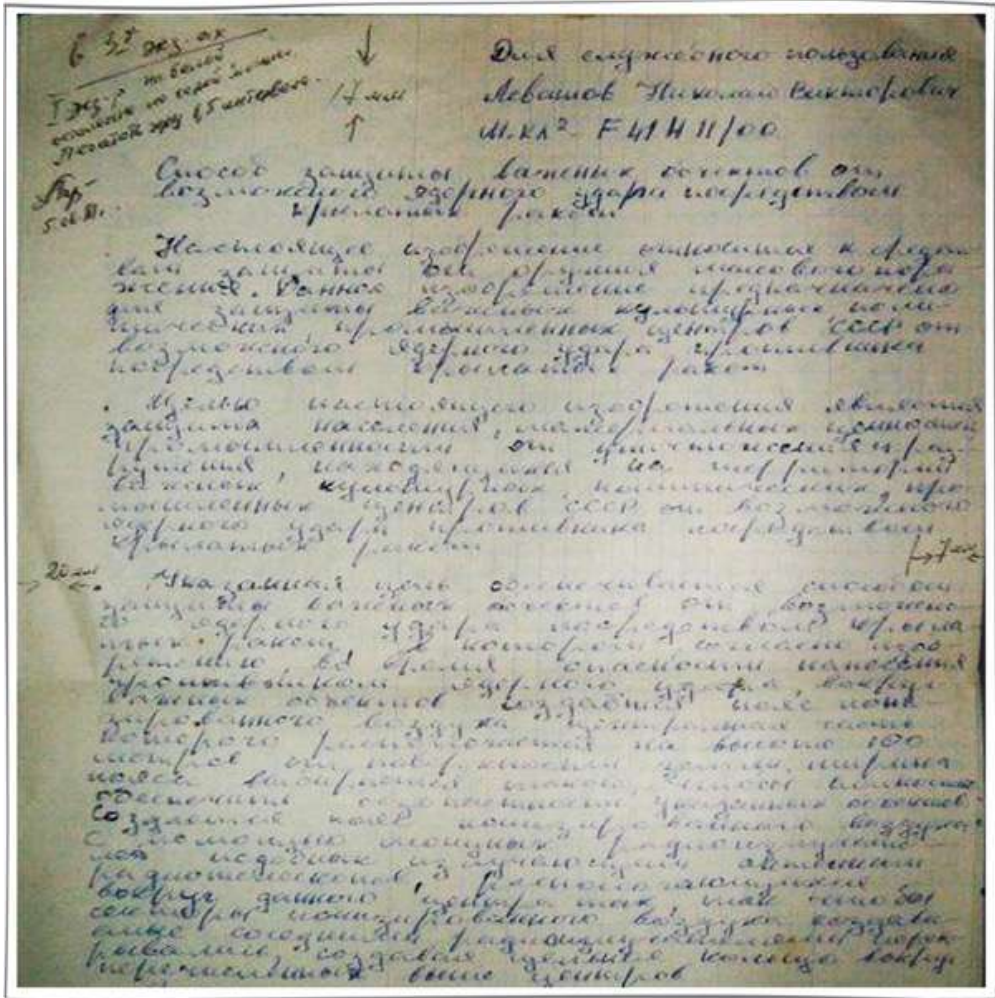 в 3х экз-ах
I экз-р на белой
остальные по серой
Печатать через 1,5 интервала.
17 мм
Для служебного пользования
Левашов Николай Викторович
М.Кл² F 41 H 11/00
Способ защиты важных объектов от
возможного ядерного удара посредством
крылатых ракет
Настоящее изобретение относится к средст
вам защиты от оружия массового пора
жения. Данное изобретение предназначено
для защиты важных культурных, поли
тических, промышленных центров СССР от
возможного ядерного удара противника
посредством крылатых ракет
Целью настоящего изобретения является
защита населения, материальных ценностей
промышленности от уничтожения и раз
рушения, находящихся на территории
важных культурных, политических, про
мышленных центров СССР от возможного
ядерного удара противника посредством
крылатых ракет
20 мм
7 мм
Указанная цель обеспечивается способом
защиты важных объектов от возможно
го ядерного удара посредством крыла
тых ракет, в котором согласно изоб
ретению, во время опасности нанесения
противником ядерного удара, вокруг
важных объектов создаётся пояс иони
зированного воздуха, центральная часть
которого располагается на высоте 100
метров от поверхности земли, ширина
пояса выбирается такой, чтобы
обеспечить безопасность указанных объектов.
Создаётся пояс ионизированного воздуха
с помощью мощных радиоизлучате
лей подобных излучающим антеннам
радиотелескопов, располагающихся
вокруг данного центра так, чтобы
секторы ионизированного воздуха создава
емые соседними радиоизлучателями перек
рывались, создавая цельное кольцо вокруг
перечисленных выше центров